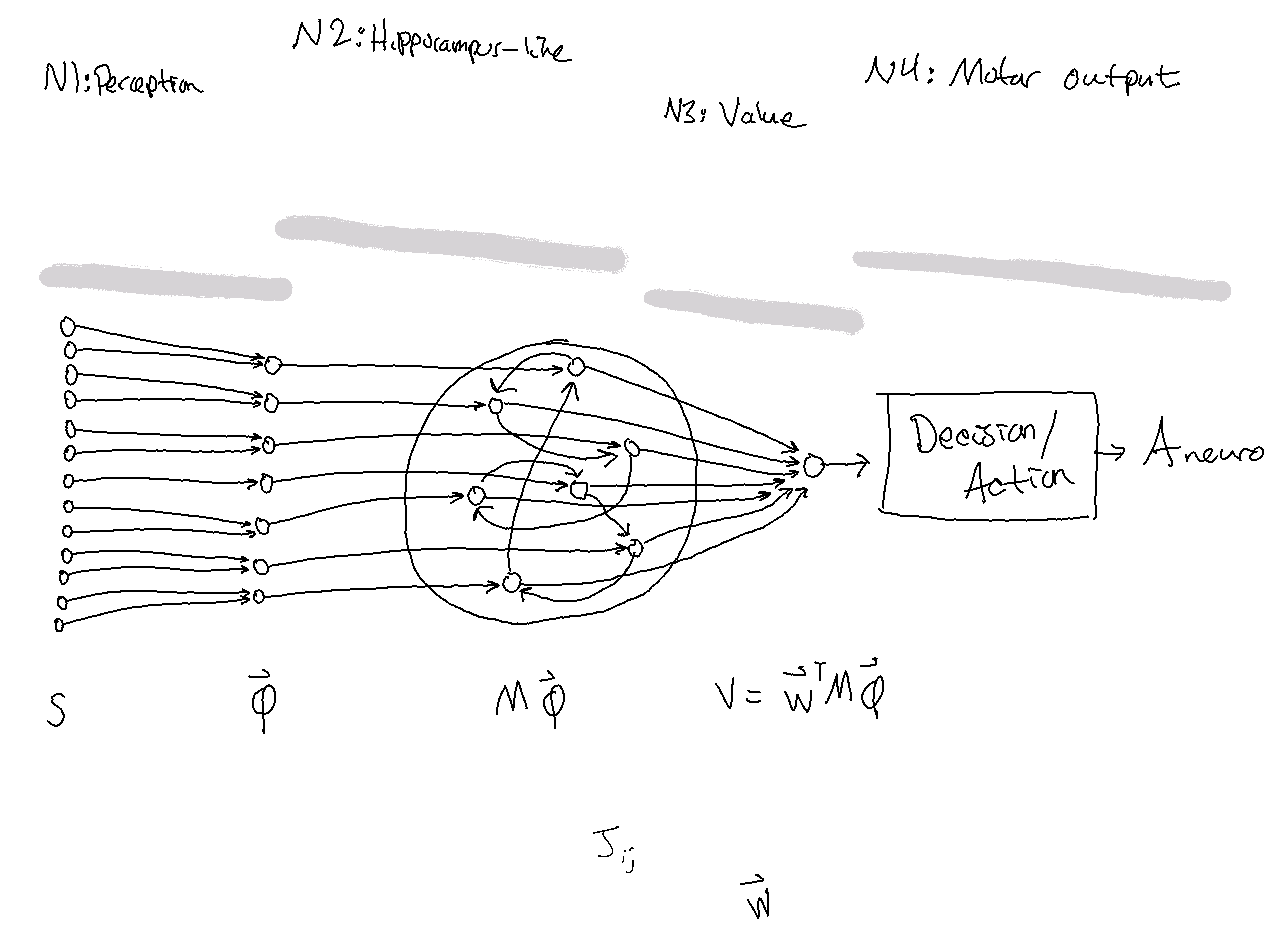 N1: Perception
N2: Hippocampus-like
N3: Value
N4: Motor output
Decision/
Action
Aneuro
S
φ⃗
Mφ⃗
V = w⃗ᵀMφ⃗
Jᵢⱼ
w⃗